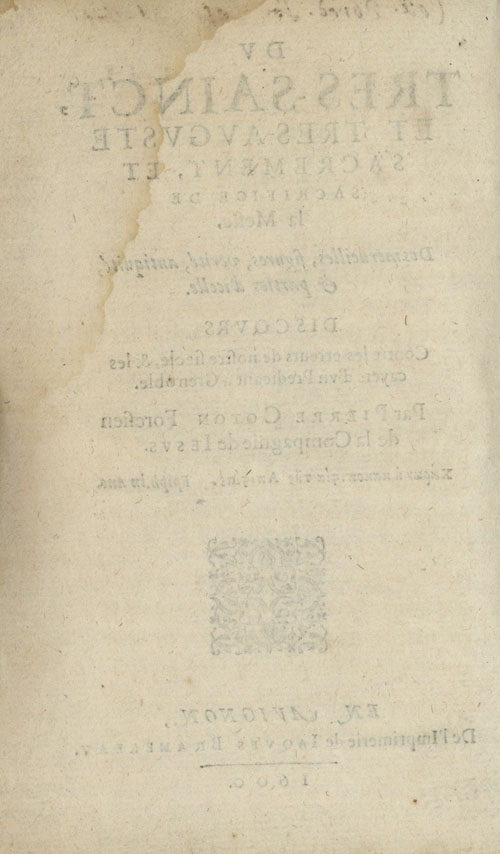 DV
TRES-SAINCT,
ET TRES-AVGVSTE
SACREMENT, ET
SACRIFICE DE
la Messe,
Des merueilles, figures, verité, antiquité,
& parties d'icelle.
DISCOVRS
Contre les erreurs de nostre siecle, & les
cayers d'vn Predicant à Grenoble.
Par PIERRE COTON Foresien
de la Compagnie de IESVS.
Epiph. in Ana
EN AVIGNON,
De l'Imprimerie de IAQVES BRAMEREAV.
1600.